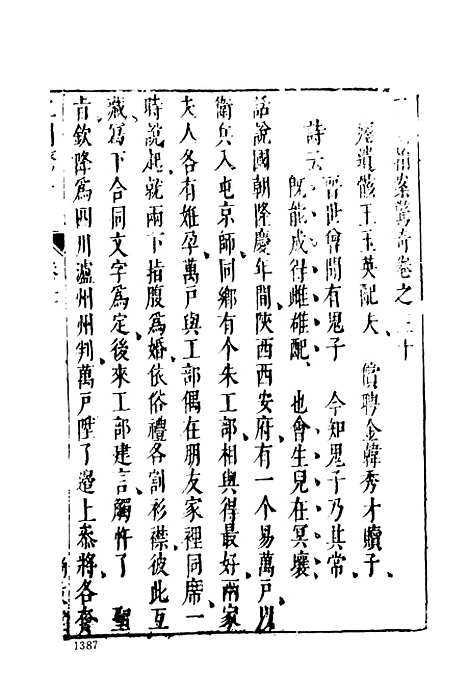 案驚奇卷之三十
瘞遺骸王玉英配夫　償聘金韓秀才贖子
詩云
晉世曾聞有鬼子　今知鬼子乃其常
旣能成得雌雄配　也會生兒在冥壤
話說國朝隆慶年間陝西西安府有一个易萬戶以
衛兵入屯京師同鄉有个朱工部相與得最好兩家
夫人各有姙孕萬戶與工部偶在朋友家裡同席一
時說起就兩下指腹爲婚依俗禮各割衫襟彼此互
藏寫下合同文字爲定後來工部建言觸忤了　聖
旨欽降爲四川瀘州州判萬戶陞了邊上參將各奔
1387